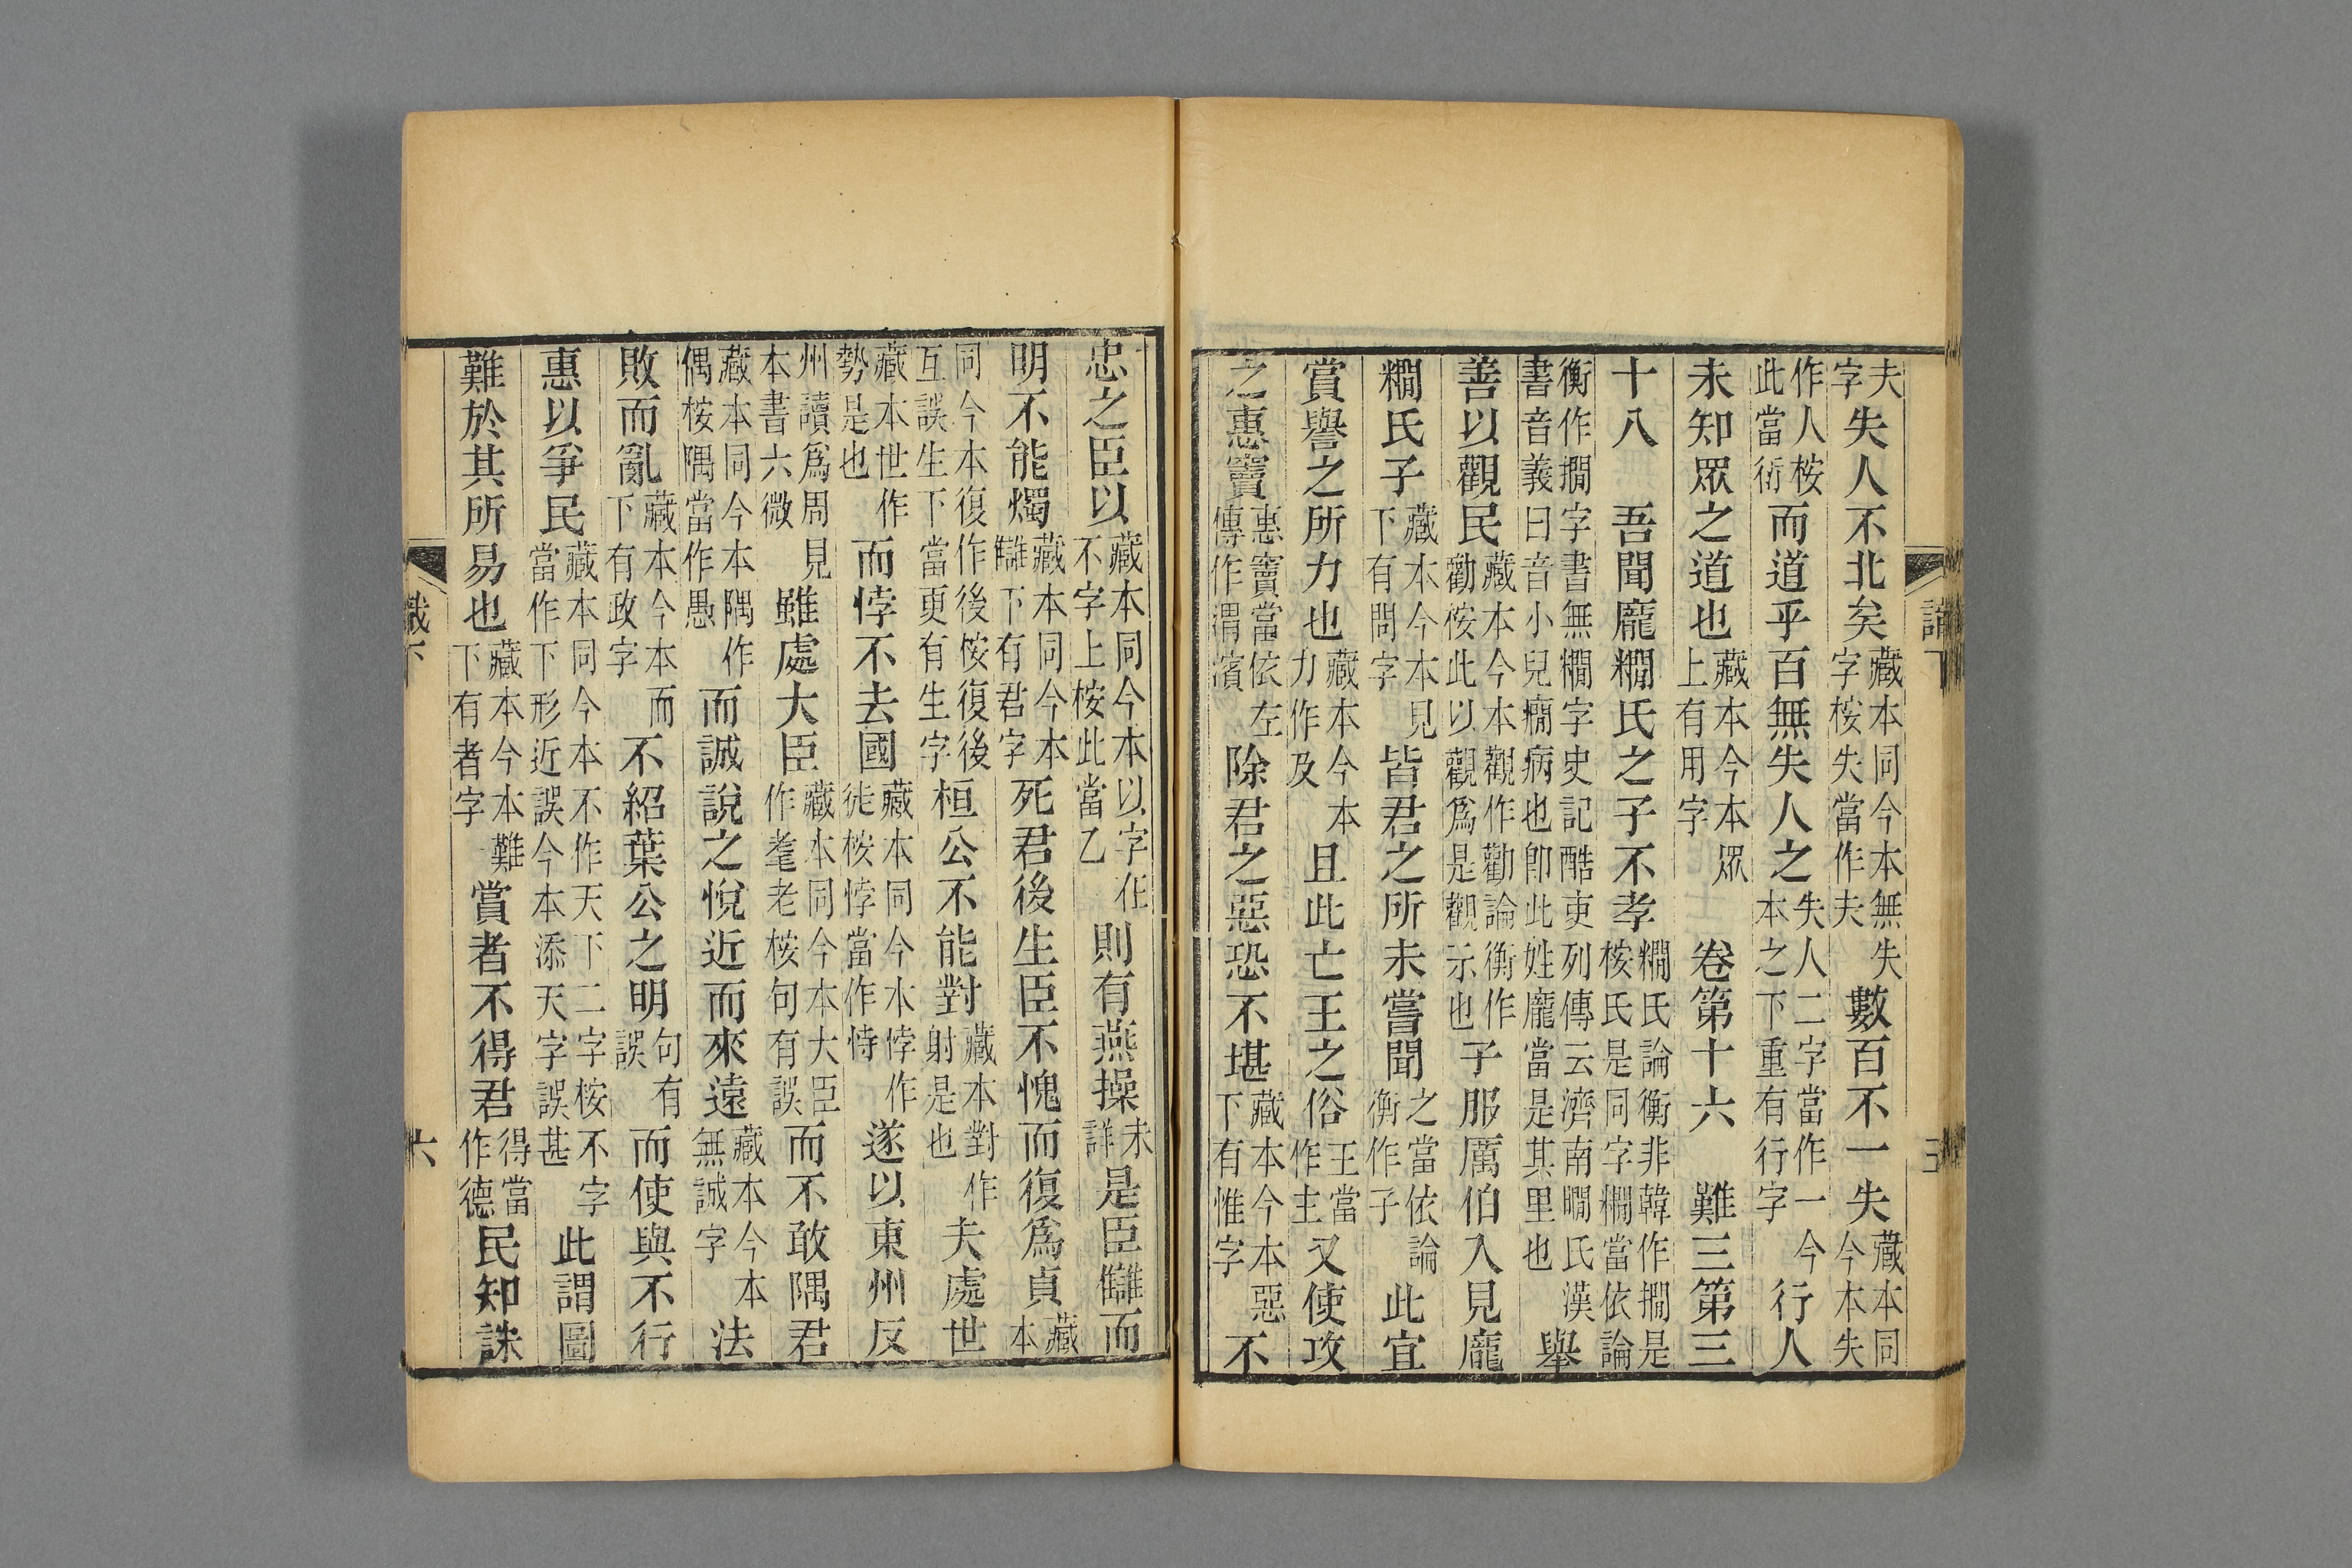 夫字失人不北矣藏本同今本無失字桉失當作夫數百不一失藏本同今本失
作人桉此當衍而道乎百無失人之失人二字當作一今本之下重有行字行人
未知眾之道也藏本今本眾上有用字 卷第十六 難三第三
十八 吾聞龐𥻘氏之子不孝𥻘氏論衡非韓作撊是桉氏是同字欄當依論
衡作撊字書無𥻘字史記酷吏列傳云濟南瞷氏漢書音義曰音小兒癇病也卽此姓龐當是其里也舉
善以觀民藏本今本觀作勸論衡作勸桉此以觀爲是觀示也子服厲伯入見龐
𥻘氏子藏本今本見下有問字皆君之所未嘗聞之當依論衡作子此宜
賞譽之所力也藏本今本力作及且此亡王之俗王當作主又使攻
之惠竇惠竇當依左傳作渭濱除君之惡恐不堪藏本今本惡下有惟字不
忠之臣以藏本同今本以字在不字上桉此當乙則有燕操未詳是臣讎而
明不能燭藏本同今本讎下有君字死君後生臣不愧而復爲貞藏本
同今本復作後桉復後互誤生下當更有生字桓公不能對藏本對作射是也夫處世
藏本世作勢是也而悖不去國藏本同今本悖作徒桉悖當作恃遂以東州反
州讀爲周見本書六微雖處大臣藏本同今本大臣作耄老桉句有誤而不敢隅君
藏本同今本隅作偶桉隅當作愚而誠說之悅近而來遠藏本今本無誠字法
敗而亂藏本今本而下有政字不紹葉公之明句有誤而使與不行
惠以爭民藏本同今本不作天下二字桉不字當作下形近誤今本添天字誤甚此謂圖
難於其所易也藏本今本難下有者字賞者不得君得當作德民知誅
識下
六